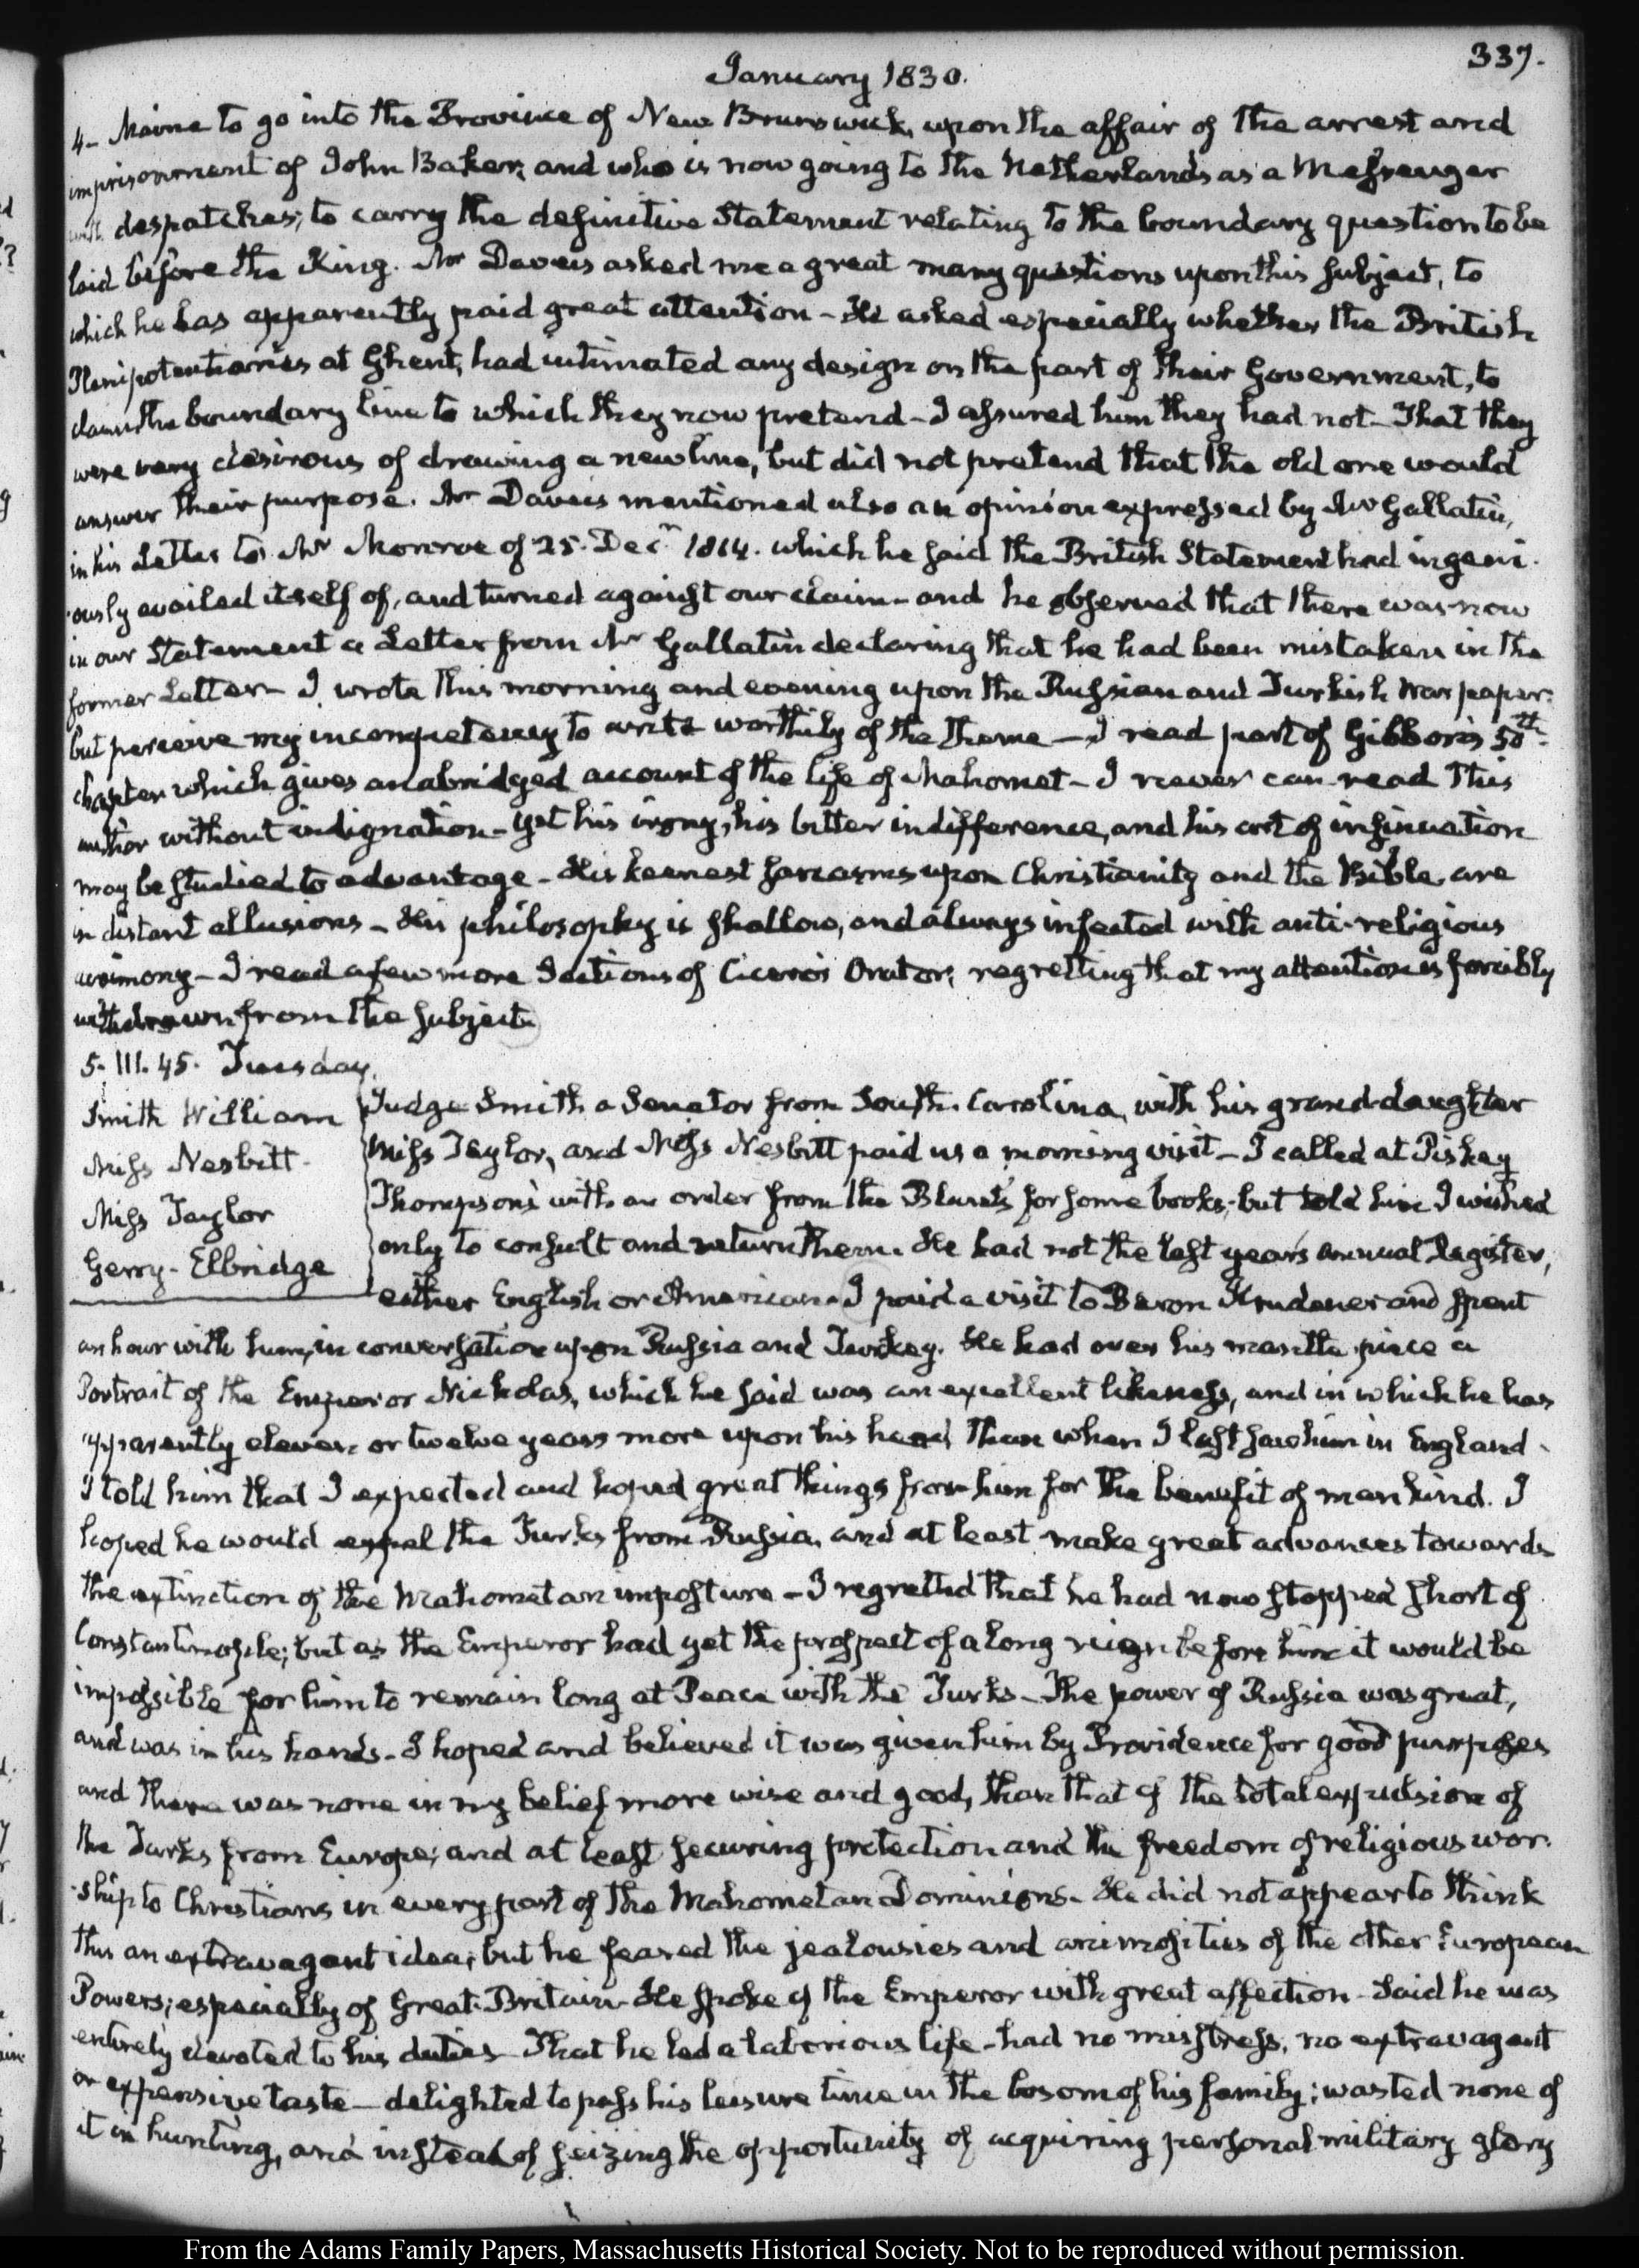 337.
January 1830.
4- Maine to go into the Province of New Brunswick, upon the affair of the arrest and
imprisonment of John Baker; and who is now going to the Netherlands as a Messenger
with despatches; to carry the definitive Statement relating to the boundary question to be
laid before the King. Mr Daveis asked me a great many questions upon this subject, to
which he has apparently paid great attention - He asked especially whether the British
Plenipotentiaries at Ghent, had intimated any design on the part of their Government, to
claim the boundary line to which they now pretend - I assured him they had not - That they
were very desirous of drawing a new line, but did not pretend that the old one would
answer their purpose. Mr Daveis mentioned also an opinion expressed by Mr Gallatin,
in his Letter to Mr Monroe of 25. Decr. 1814. which he said the British Statement had ingeni-
-ously availed itself of, and turned against our claim - and he observed that there was now
in our Statement a Letter from Mr Gallatin declaring that he had been mistaken in the
former Letter - I wrote this morning and evening upon the Russian and Turkish War paper:
but perceive my incompetency to write worthily of the theme - I read part of Gibbon's 50th
chapter which gives an abridged account of the life of Mahomet - I never can read this
author without indignation - yet his irony, his bitter indifference, and his art of insinuation
may be studied to advantage - His keenest sarcasms upon Christianity and the Bible, are
in distant allusions - His philosophy is shallow, and always infected with anti-religious
acrimony - I read a few more Sections of Cicero's Orator; regretting that my attention is forcibly
withdrawn from the subject.
5. III. 45. Tuesday.
Smith William
Miss Nesbitt.
Miss Taylor
Gerry - Elbridge
Judge Smith a Senator from South. Carolina, with his grand-daughter
Miss Taylor, and Miss Nesbitt paid us a morning visit - I called at Pishey
Thompson's with an order from the Blunts for some books; but told him I wished
only to consult and return them. He had not the last year's annual Register,
either English or American. I paid a visit to Baron Krudener and spent
an hour with him, in conversation upon Russia and Turkey. He had over his mantle piece a
Portrait of the Emperor Nicholas, which he said was an excellent likeness, and in which he has
apparently eleven or twelve years more upon his head, than when I last saw him in England -
I told him that I expected and hoped great things from him for the benefit of mankind. I
hoped he would expel the Turks from Russia, and at least make great advances towards
the extinction of the Mahometan imposture - I regretted that he had now stopped short of
Constantinople; but as the Emperor had yet the prospect of a long reign before him it would be
impossible for him to remain long at Peace with the Turks - The power of Russia was great,
and was in his hands - I hoped and believed it was given him by Providence for good purposes
and there was none in my belief more wise and good, than that of the total expulsion of
the Turks from Europe; and at least securing protection and the freedom of religious wor-
-ship to Christians in every part of the Mahometan Dominions. He did not appear to think
this an extravagant idea; but he feared the jealousies and animosities of the other European
Powers; especially of Great-Britain - He spoke of the Emperor with great affection - Said he was
entirely devoted to his duties - That he led a laborious life - had no mistress, no extravagant
or expensive taste - delighted to pass his leisure time in the bosom of his family; wasted none of
it in hunting, and instead of seizing the opportunity of acquiring personal military glory
From the Adams Family Papers, Massachusetts Historical Society. Not to be reproduced without permission.